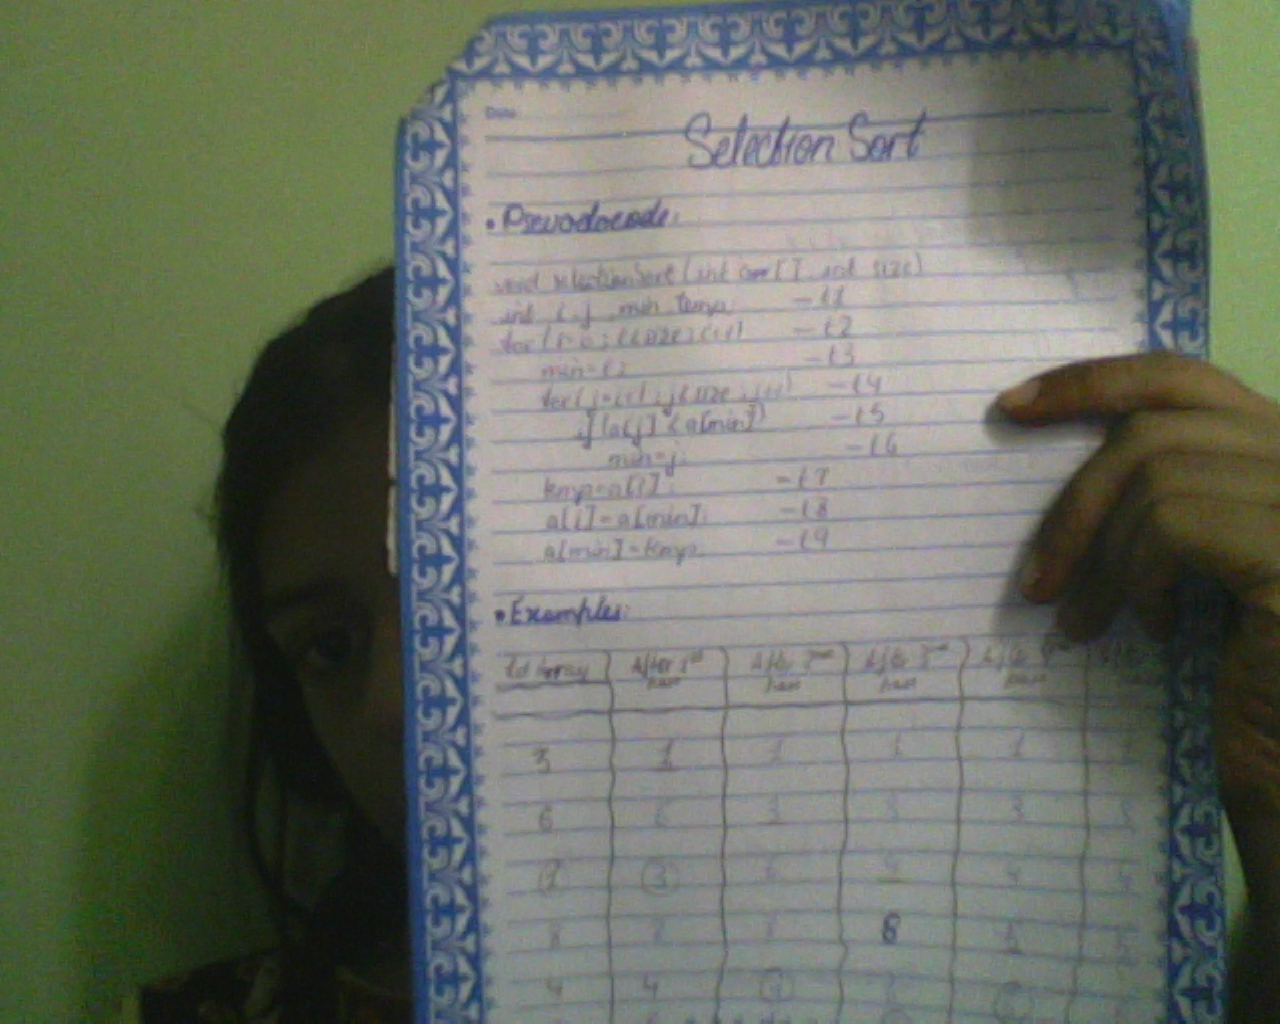 Date:
Selection Sort
• Pseudocode:
void selectionSort(int arr[], int size)
int i, j, min, temp; - t1
for(i=0; i<size; i++) - t2
min=i; - t3
for(j=i+1; j<size; j++) - t4
if(a[j]<a[min]) - t5
min=j; - t6
temp=a[i]; - t7
a[i]=a[min]; - t8
a[min]=temp; - t9
• Examples:
Array After 1st pass After 2nd pass After 3rd pass After pass
3 1 1 1 1 1
6 6 3 3 3 3
1 3 6 4 4 4
8 8 8 8 5 5
4 4 4